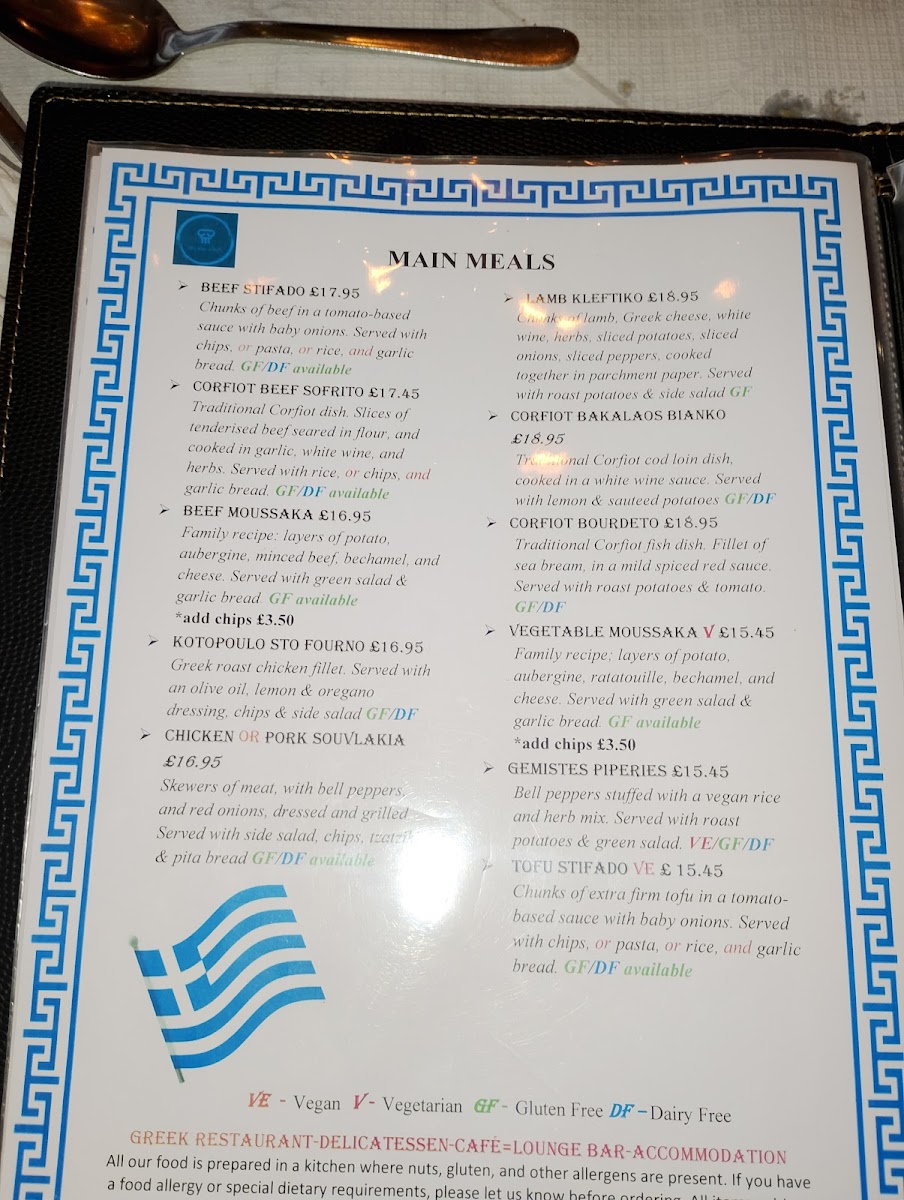 MAIN MEALS
➤ BEEF STIFADO £17.95
Chunks of beef in a tomato-based
sauce with baby onions. Served with
chips, or pasta, or rice, and garlic
bread. GF/DF available
➤ CORFIOT BEEF SOFRITO £17.45
Traditional Corfiot dish. Slices of
tenderised beef seared in flour, and
cooked in garlic, white wine, and
herbs. Served with rice, or chips, and
garlic bread. GF/DF available
➤ BEEF MOUSSAKA £16.95
Family recipe: layers of potato,
aubergine, minced beef, bechamel, and
cheese. Served with green salad &
garlic bread. GF available
*add chips £3.50
➤ KOTOPOULO STO FOURNO £16.95
Greek roast chicken fillet. Served with
an olive oil, lemon & oregano
dressing, chips & side salad GF/DF
➤ CHICKEN OR PORK SOUVLAKIA
£16.95
Skewers of meat, with bell peppers,
and red onions, dressed and grilled
Served with side salad, chips, tzatziki
& pita bread GF/DF available
➤ LAMB KLEFTIKO £18.95
Chunks of lamb, Greek cheese, white
wine, herbs, sliced potatoes, sliced
onions, sliced peppers, cooked
together in parchment paper. Served
with roast potatoes & side salad GF
➤ CORFIOT BAKALAOS BIANKO
£18.95
Traditional Corfiot cod loin dish,
cooked in a white wine sauce. Served
with lemon & sauteed potatoes GF/DF
➤ CORFIOT BOURDETO £18.95
Traditional Corfiot fish dish. Fillet of
sea bream, in a mild spiced red sauce.
Served with roast potatoes & tomato.
GF/DF
➤ VEGETABLE MOUSSAKA V £15.45
Family recipe; layers of potato,
aubergine, ratatouille, bechamel, and
cheese. Served with green salad &
garlic bread. GF available
*add chips £3.50
➤ GEMISTES PIPERIES £15.45
Bell peppers stuffed with a vegan rice
and herb mix. Served with roast
potatoes & green salad. VE/GF/DF
➤ TOFU STIFADO VE £ 15.45
Chunks of extra firm tofu in a tomato-
based sauce with baby onions. Served
with chips, or pasta, or rice, and garlic
bread. GF/DF available
VE - Vegan V- Vegetarian GF - Gluten Free DF – Dairy Free
GREEK RESTAURANT-DELICATESSEN-CAFÉ=LOUNGE BAR-ACCOMMODATION
All our food is prepared in a kitchen where nuts, gluten, and other allergens are present. If you have
a food allergy or special dietary requirements, please let us know before ordering. All